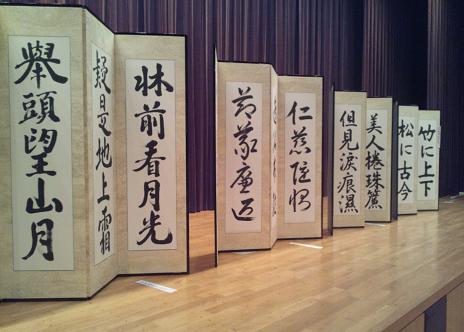 竹に上下
松に古今
美人捲珠簾
但見涙痕濕
仁慈隱惻
節義廉退
牀前看月光
疑是地上霜
舉頭望山月